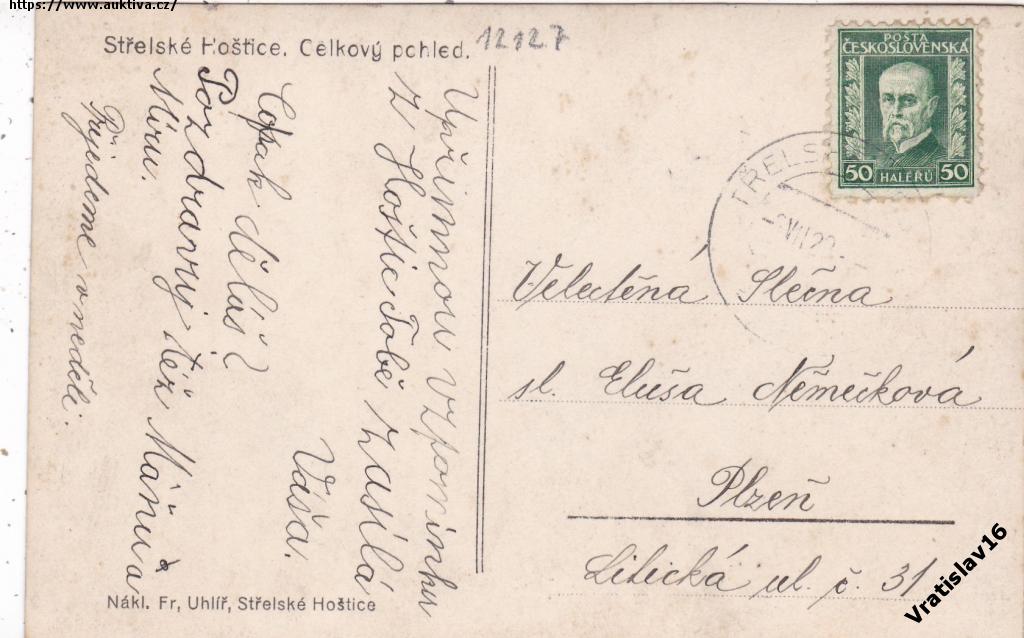 https://www.auktiva.cz/
Střelské Hoštice. Celkový pohled.
12127
POSTA
ČESKOSLOVENSKÁ
50 HALÉŘŮ 50
TŘELS
VII
Upřímnou vzpomínku
z Hoštic Tobě zasílá
Váša.
Copak děláš?
Pozdravuj též Mařenu a
Miru.
Přijedeme v neděli.
Velectěná Slečna
sl. Eluša Němečková
Plzeň
Litická ul. č. 31
Nákl. Fr, Uhlíř, Střelské Hoštice
Vratislav16